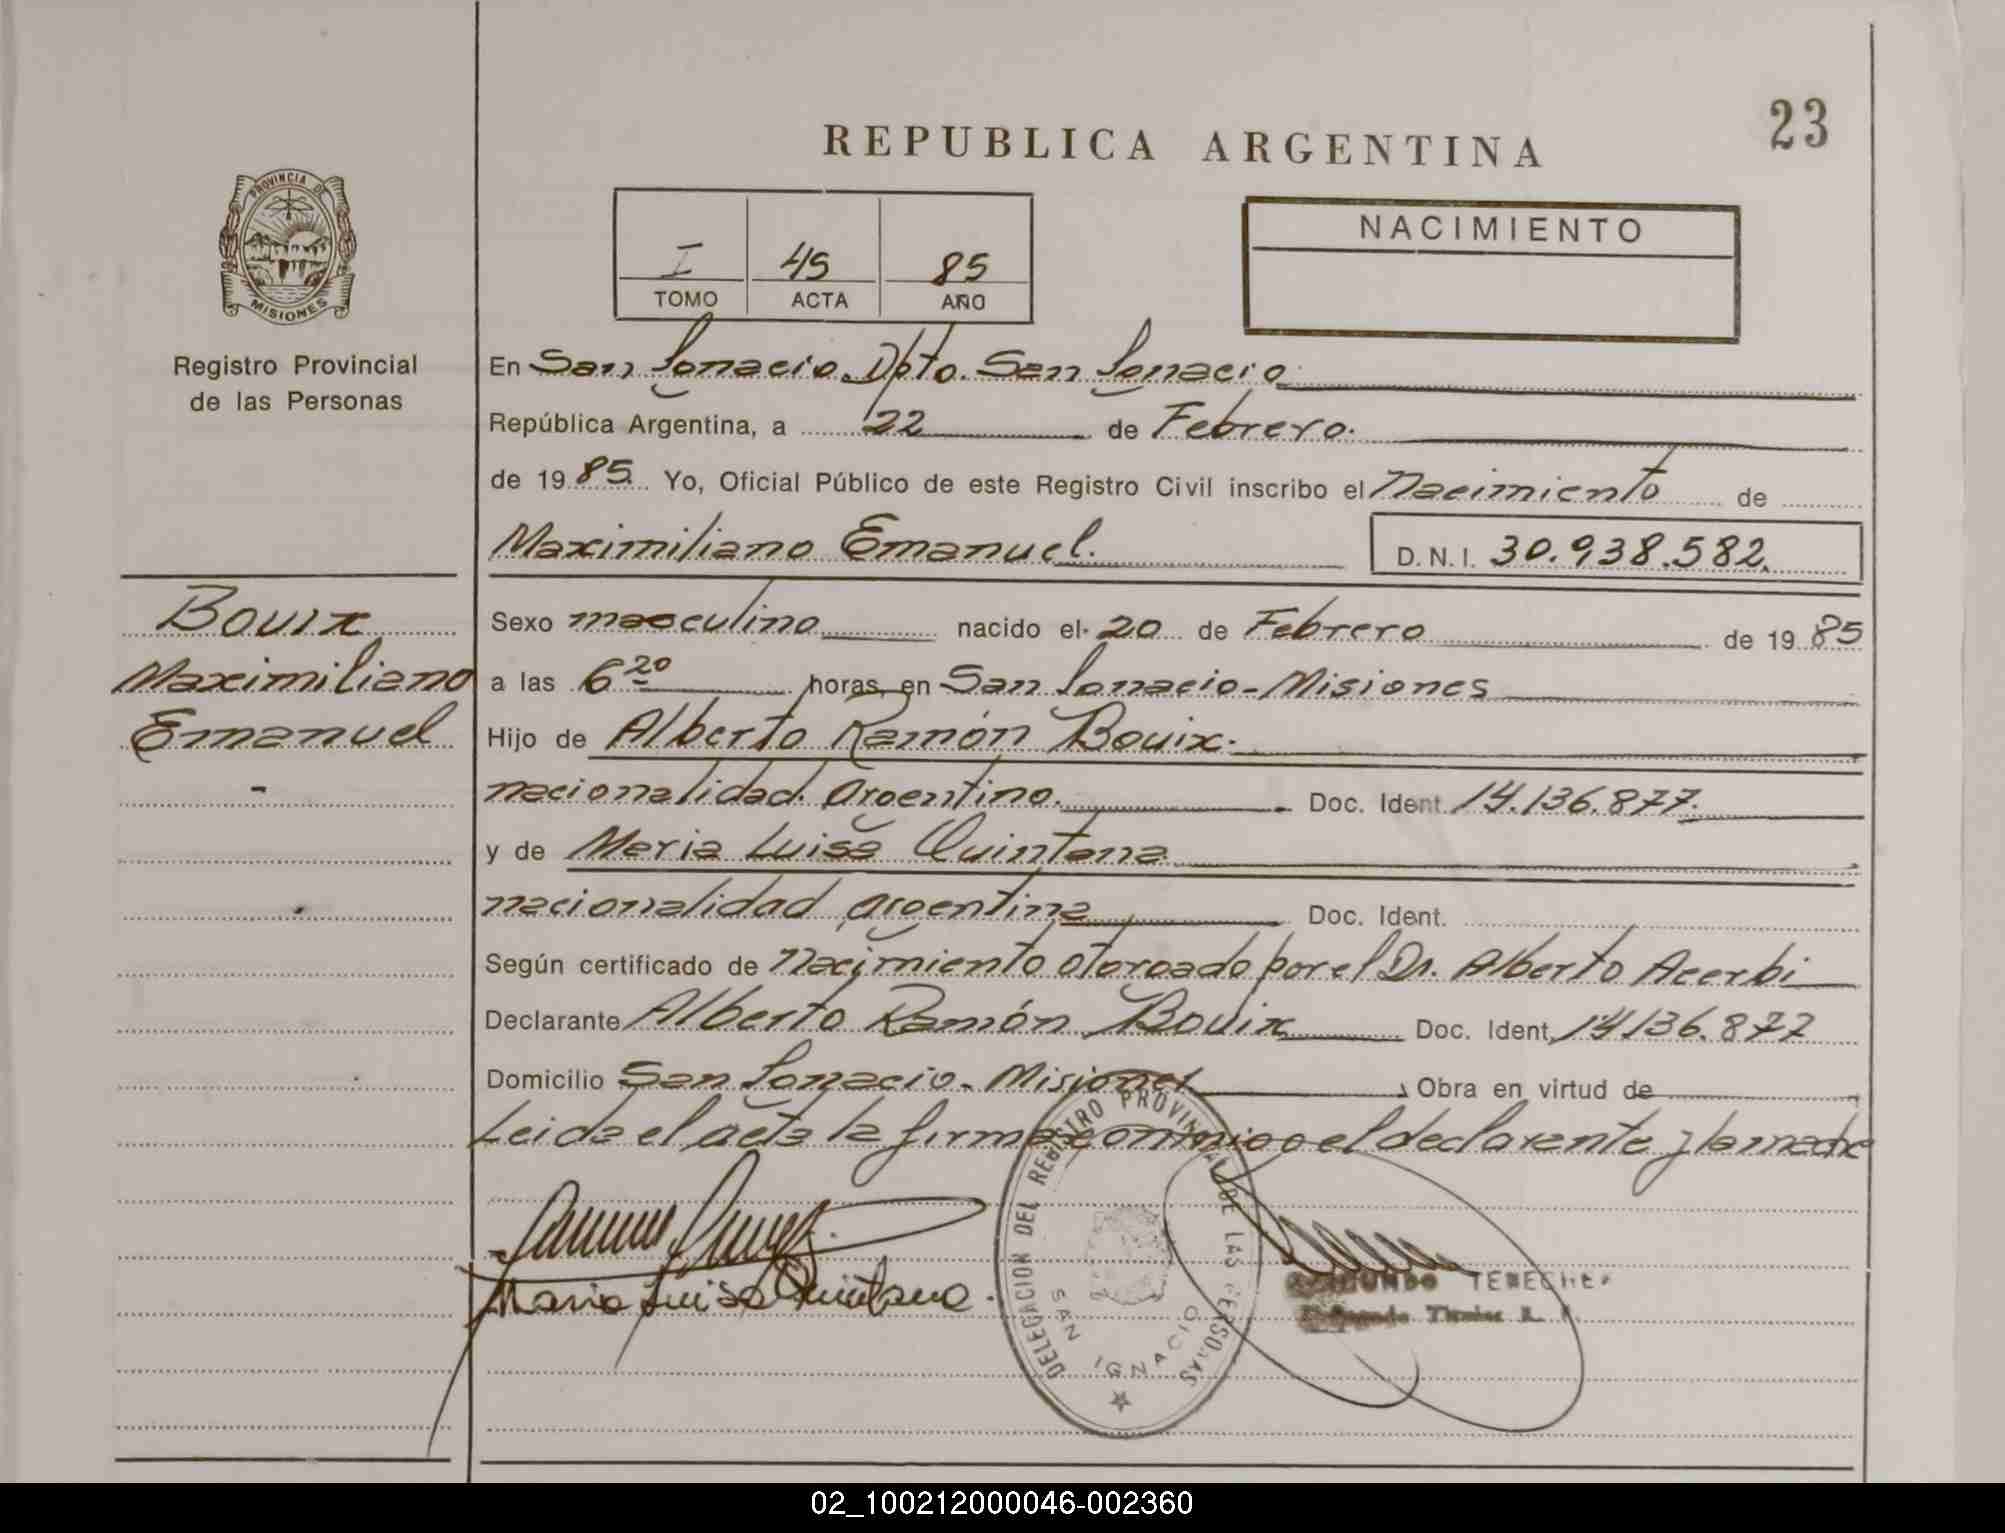 23
REPUBLICA ARGENTINA
PROVINCIA DE
MISIONES
Registro Provincial
de las Personas
I 45 85
TOMO ACTA AÑO
NACIMIENTO
En San Ignacio Dpto. San Ignacio
República Argentina, a 22 de Febrero.
de 1985 Yo, Oficial Público de este Registro Civil inscribo el Nacimiento de
Maximiliano Emanuel. D.N.I. 30.938.582.
Bouix
Maximiliano
Emanuel
-
Sexo masculino nacido el 20 de Febrero de 1985
a las 6 20 horas en San Ignacio - Misiones
Hijo de Alberto Ramón Bouix.
nacionalidad argentino. Doc. Ident. 14.136.877.
y de Maria Luisa Quintana
nacionalidad argentina Doc. Ident.
Según certificado de Nacimiento otorgado por el Dr. Alberto Acerbi
Declarante Alberto Ramón Bouix Doc. Ident. 14.136.877
Domicilio San Ignacio - Misiones, Obra en virtud de
Leida el acta la firma conmigo el declarante y la madre
Maria Luisa Quintana.
DELEGACION DEL REGISTRO PROVINCIAL DE LAS PERSONAS
SAN IGNACIO
02_100212000046-002360